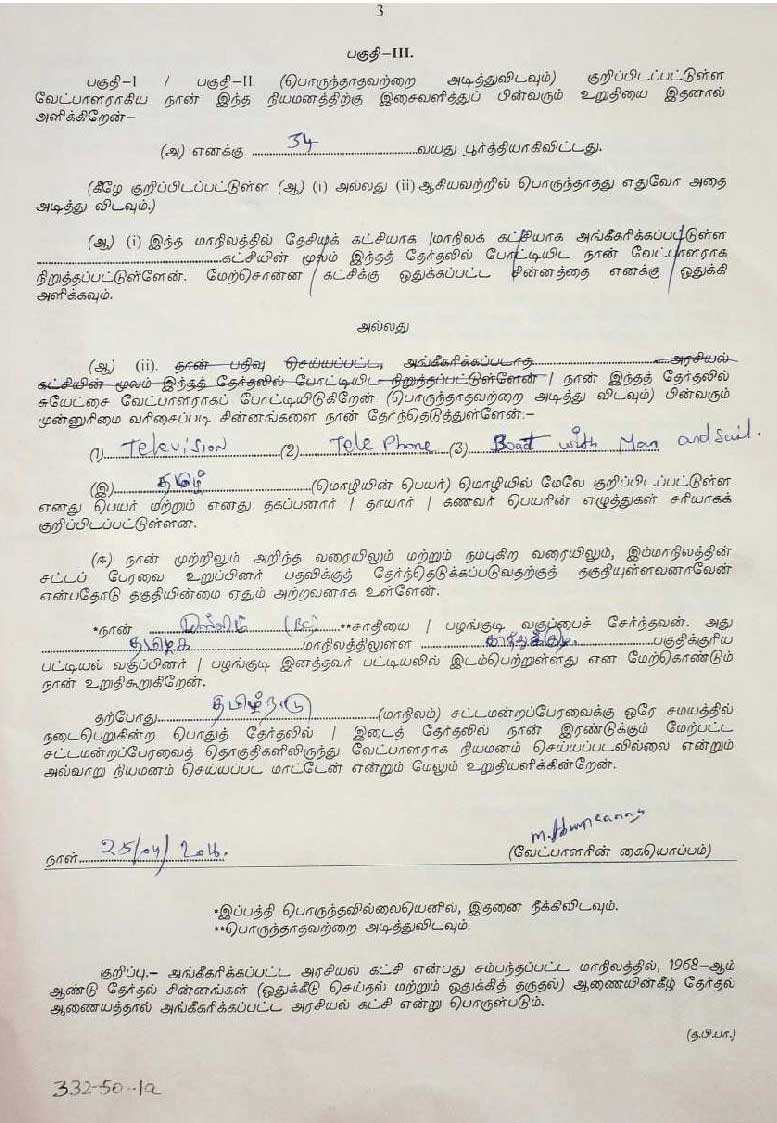 3
பகுதி-III.
பகுதி-I / பகுதி-II (பொருந்தாதவற்றை அடித்துவிடவும்) குறிப்பிடப்பட்டுள்ள
வேட்பாளராகிய நான் இந்த நியமனத்திற்கு இசைவளித்துப் பின்வரும் உறுதியை இதனால்
அளிக்கிறேன்-
(அ) எனக்கு 34 வயது பூர்த்தியாகிவிட்டது.
(கீழே குறிப்பிடப்பட்டுள்ள (ஆ) (i) அல்லது (ii) ஆகியவற்றில் பொருந்தாதது எதுவோ அதை
அடித்து விடவும்.)
(ஆ) (i) இந்த மாநிலத்தில் தேசியக் கட்சியாக /மாநிலக் கட்சியாக அங்கீகரிக்கப்பட்டுள்ள
கட்சியின் மூலம் இந்தத் தேர்தலில் போட்டியிட நான் வேட்பாளராக
நிறுத்தப்பட்டுள்ளேன். மேற்சொன்ன கட்சிக்கு ஒதுக்கப்பட்ட சின்னத்தை எனக்கு ஒதுக்கி
அளிக்கவும்.
அல்லது
(ஆ) (ii). நான் பதிவு செய்யப்பட்ட, அங்கீகரிக்கப்படாத அரசியல்
கட்சியின் மூலம் இந்தத் தேர்தலில் போட்டியிட நிறுத்தப்பட்டுள்ளேன் / நான் இந்தத் தேர்தலில்
சுயேட்சை வேட்பாளராகப் போட்டியிடுகிறேன் (பொருந்தாதவற்றை அடித்து விடவும்) பின்வரும்
முன்னுரிமை வரிசைப்படி சின்னங்களை நான் தேர்ந்தெடுத்துள்ளேன்:-
(1) Television (2) Tele Phone (3) Boat with Man and Sail.
(இ) தமிழ் (மொழியின் பெயர்) மொழியில் மேலே குறிப்பிடப்பட்டுள்ள
எனது பெயர் மற்றும் எனது தகப்பனார் / தாயார் / கணவர் பெயரின் எழுத்துகள் சரியாகக்
குறிப்பிடப்பட்டுள்ளன.
(ஈ) நான் முற்றிலும் அறிந்த வரையிலும் மற்றும் நம்புகிற வரையிலும், இம்மாநிலத்தின்
சட்டப் பேரவை உறுப்பினர் பதவிக்குத் தேர்ந்தெடுக்கப்படுவதற்குத் தகுதியுள்ளவனாவேன்
என்பதோடு தகுதியின்மை ஏதும் அற்றவனாக உள்ளேன்.
*நான் (BC) **சாதியை / பழங்குடி வகுப்பைச் சேர்ந்தவன். அது
தமிழக மாநிலத்திலுள்ள பகுதிக்குரிய
பட்டியல் வகுப்பினர் / பழங்குடி இனத்தவர் பட்டியலில் இடம்பெற்றுள்ளது என மேற்கொண்டும்
நான் உறுதிகூறுகிறேன்.
தற்போது தமிழ்நாடு (மாநிலம்) சட்டமன்றப்பேரவைக்கு ஒரே சமயத்தில்
நடைபெறுகின்ற பொதுத் தேர்தலில் / இடைத் தேர்தலில் நான் இரண்டுக்கும் மேற்பட்ட
சட்டமன்றப்பேரவைத் தொகுதிகளிலிருந்து வேட்பாளராக நியமனம் செய்யப்படவில்லை என்றும்
அவ்வாறு நியமனம் செய்யப்பட மாட்டேன் என்றும் மேலும் உறுதியளிக்கின்றேன்.
நாள் 25/04/2016.
(வேட்பாளரின் கையொப்பம்)
*இப்பத்தி பொருந்தவில்லையெனில், இதனை நீக்கிவிடவும்.
**பொருந்தாதவற்றை அடித்துவிடவும்.
குறிப்பு.- அங்கீகரிக்கப்பட்ட அரசியல் கட்சி என்பது சம்பந்தப்பட்ட மாநிலத்தில், 1968-ஆம்
ஆண்டு தேர்தல் சின்னங்கள் (ஒதுக்கீடு செய்தல் மற்றும் ஒதுக்கித் தருதல்) ஆணையின்கீழ் தேர்தல்
ஆணையத்தால் அங்கீகரிக்கப்பட்ட அரசியல் கட்சி என்று பொருள்படும்.
(த.பி.பா.)
332-50-1a